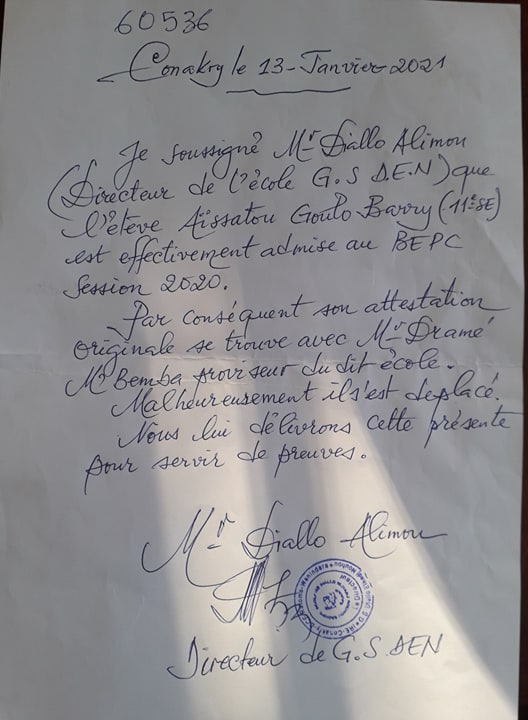 60536
Conakry le 13-Janvier 2021
Je soussigné Mr Diallo Alimou
(Directeur de l'école G.S DEN) que
l'élève Aïssatou Goulo Barry (11è SE)
est effectivement admise au BEPC
Session 2020.
Par conséquent son attestation
Originale se trouve avec Mr Dramé
Mr Bemba proviseur du dit école.
Malheureusement il s'est deplacé.
Nous lui délivrons cette présente
pour servir de preuves.
Mr Diallo Alimou
Directeur de G.S DEN